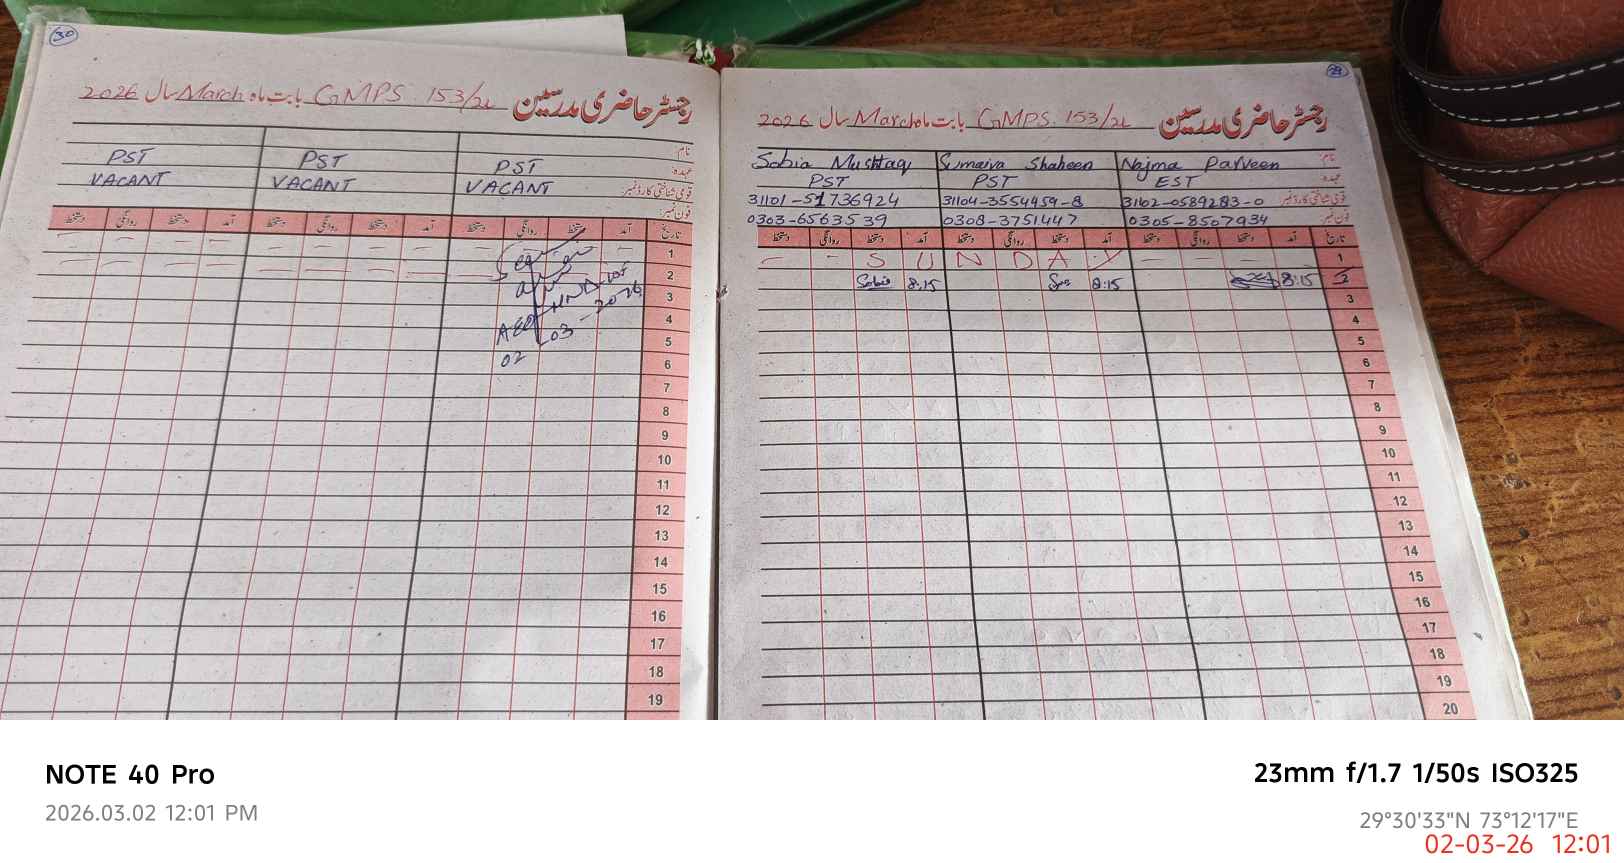 30
رجسٹر حاضری مدرسین GMPS 153/2L بابت ماہ March سال 2026
نام:
عہدہ: PST PST PST
قومی شناختی کارڈ نمبر VACANT VACANT VACANT
فون نمبر:
تاریخ آمد دستخط روانگی دستخط آمد دستخط روانگی دستخط آمد دستخط روانگی دستخط
1
2
3
4
5
6
7
8
9
10
11
12
13
14
15
16
17
18
19
AEO
02-03-2026
29
رجسٹر حاضری مدرسین GMPS. 153/2L بابت ماہ March سال 2026
نام: Sobia Mushtaq Sumaiya Shaheen Najma Parveen
عہدہ: PST PST EST
قومی شناختی کارڈ نمبر 31101-51736924 31104-3554459-8 31102-0589283-0
فون نمبر 0303-6563539 0308-3751447 0305-8507934
تاریخ آمد دستخط روانگی دستخط آمد دستخط روانگی دستخط آمد دستخط روانگی دستخط
1 S U N D A Y
2 Sobia 8:15 8:15 8:15
3
4
5
6
7
8
9
10
11
12
13
14
15
16
17
18
19
20
NOTE 40 Pro
2026.03.02 12:01 PM
23mm f/1.7 1/50s ISO325
29°30'33"N 73°12'17"E
02-03-26 12:01